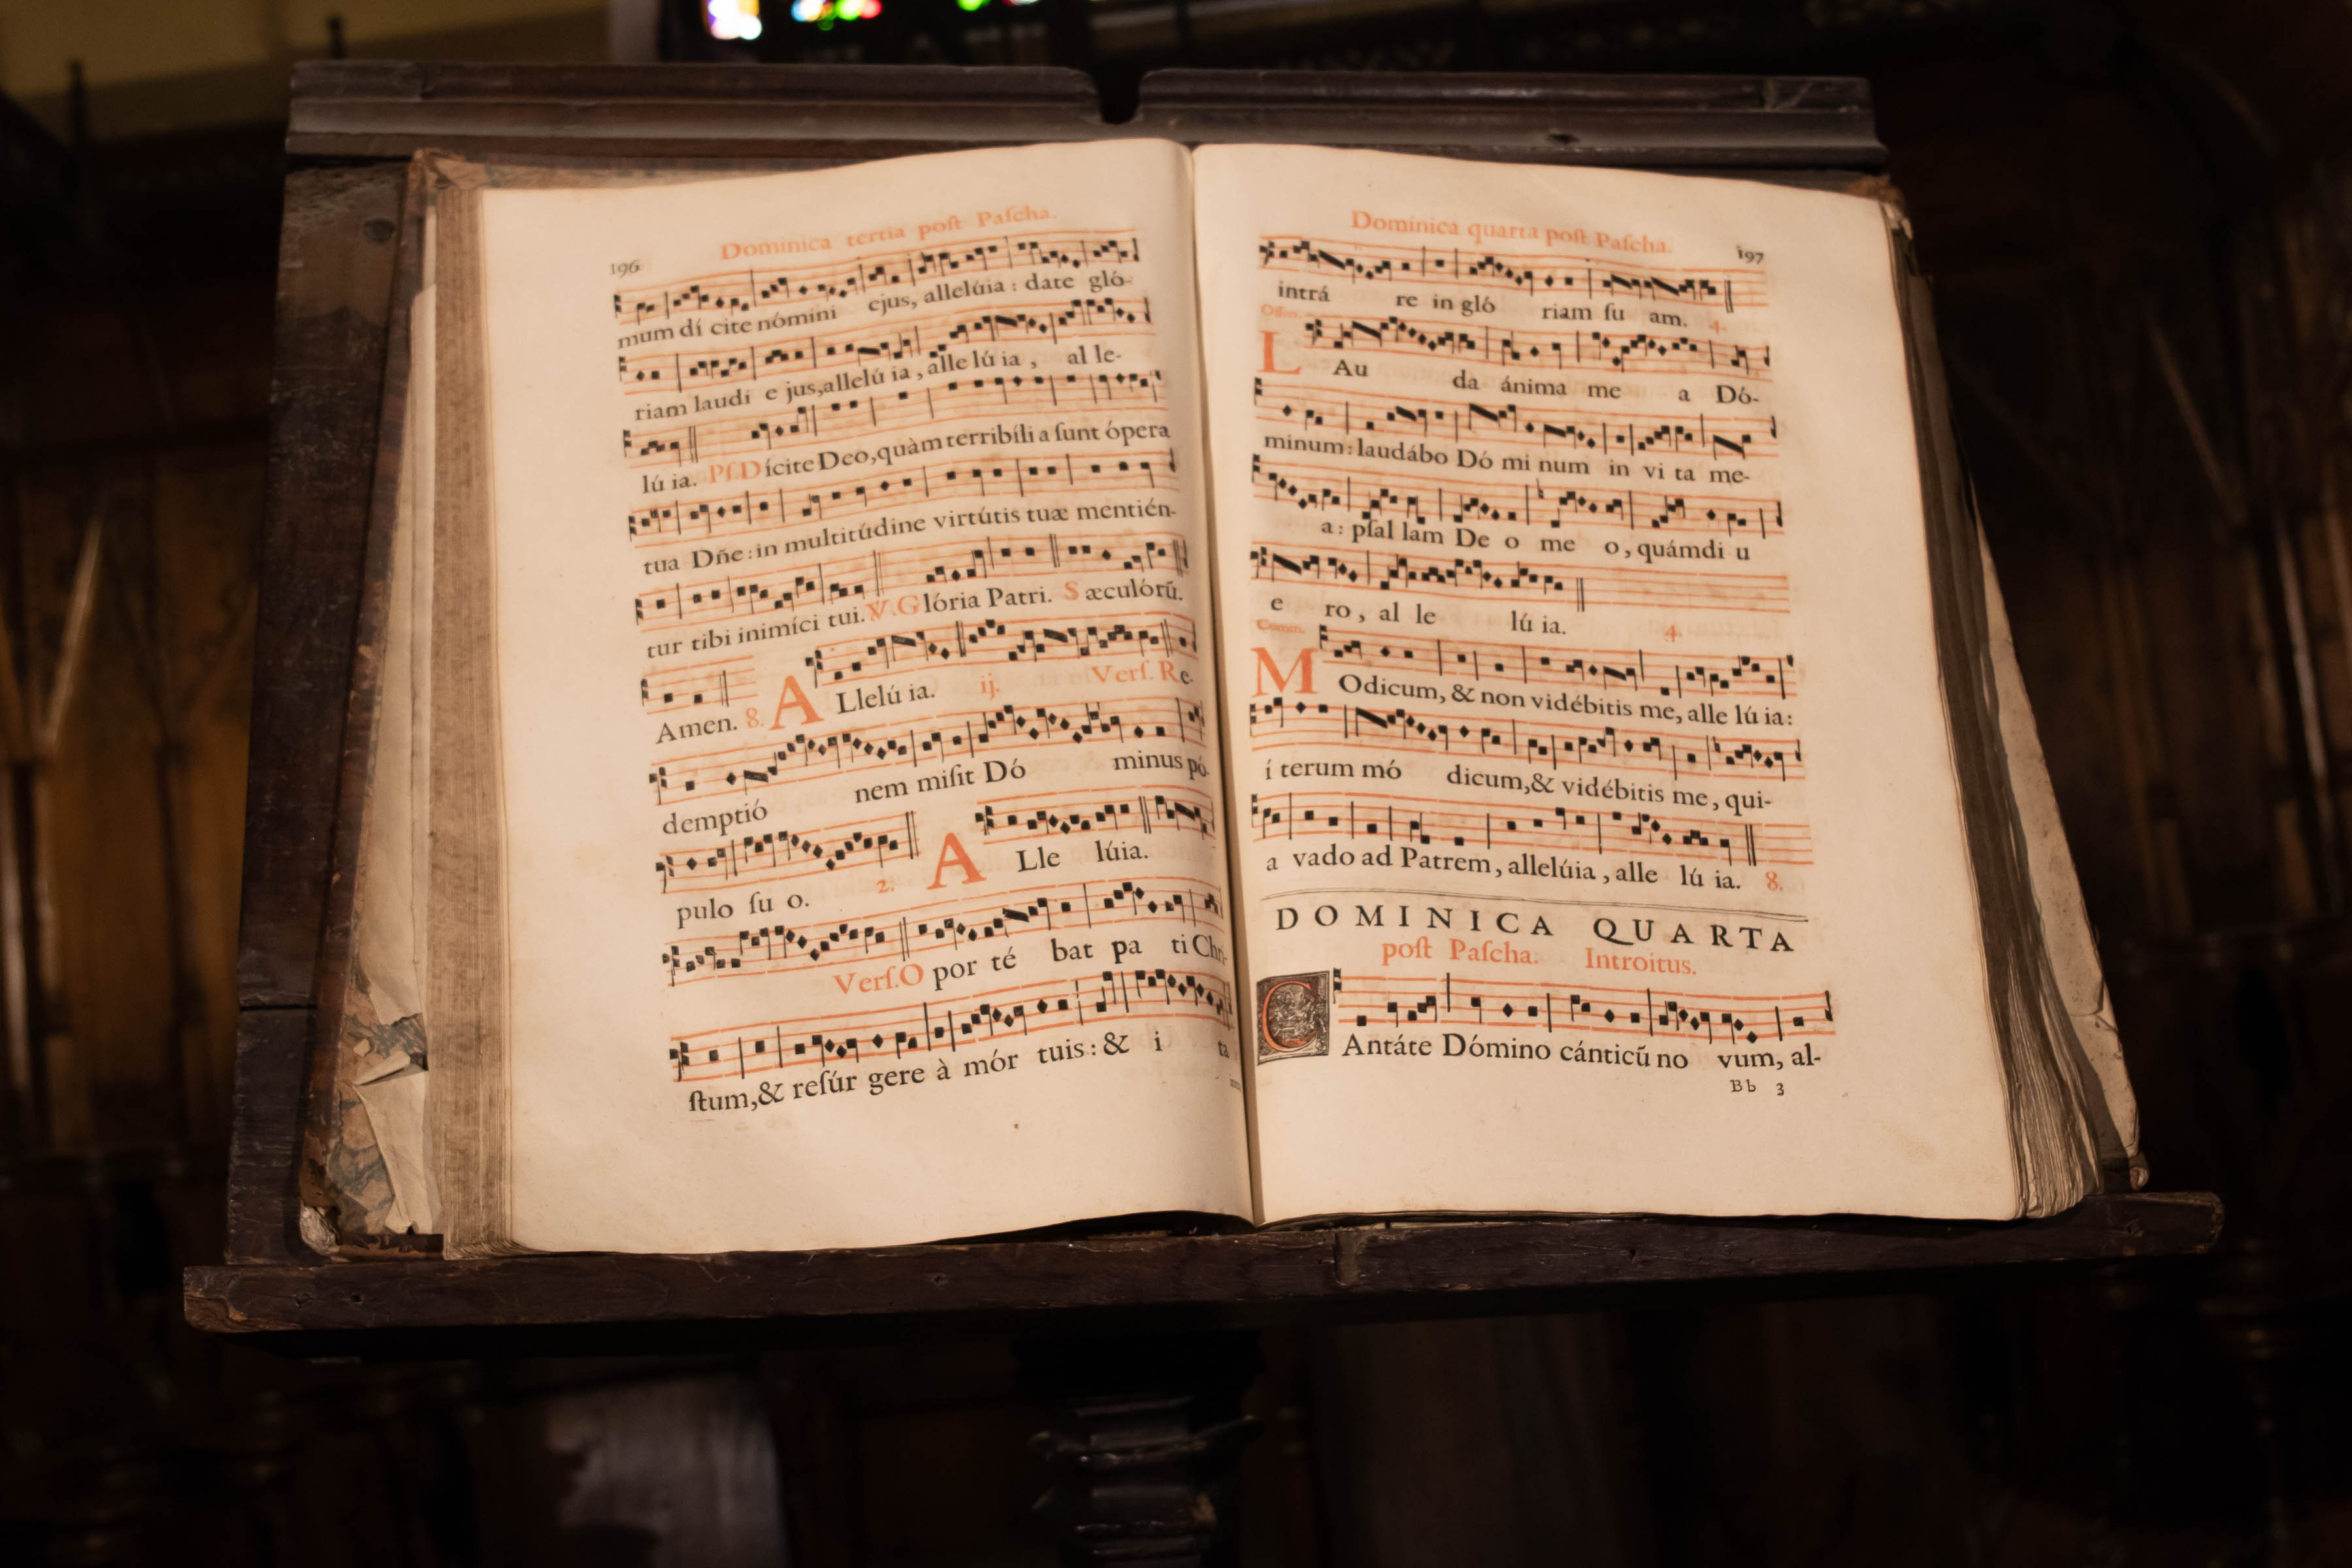 Dominica tertia poſt Paſcha.
196
mum dí cite nómini ejus, allelúia : date gló-
riam laudi e jus, allelú ia , alle lú ia , al le-
lú ia. Pſ. Dícite Deo, quàm terribíli a ſunt ópera
tua Dñe : in multitúdine virtútis tuæ mentién-
tur tibi inimíci tui. ℣. Glória Patri. Sæculórũ.
Amen. 8. ALlelú ia. ij. Verſ. Re-
demptió nem miſit Dó minus pó-
pulo ſu o. 2. ALle lúia.
Verſ. O por té bat pa ti Chri-
ſtum, & reſúr gere à mór tuis : & i ta
Dominica quarta poſt Paſcha.
197
intrá re in gló riam ſu am. 4.
Offert.
LAu da ánima me a Dó-
minum : laudábo Dó mi num in vi ta me-
a : pſal lam De o me o, quámdi u
e ro, al le lú ia. 4.
Comm.
MOdicum, & non vidébitis me, alle lú ia :
í terum mó dicum, & vidébitis me, qui-
a vado ad Patrem, allelúia , alle lú ia. 8.
DOMINICA QUARTA
poſt Paſcha. Introitus.
CAntáte Dómino cánticũ no vum, al-
Bb 3